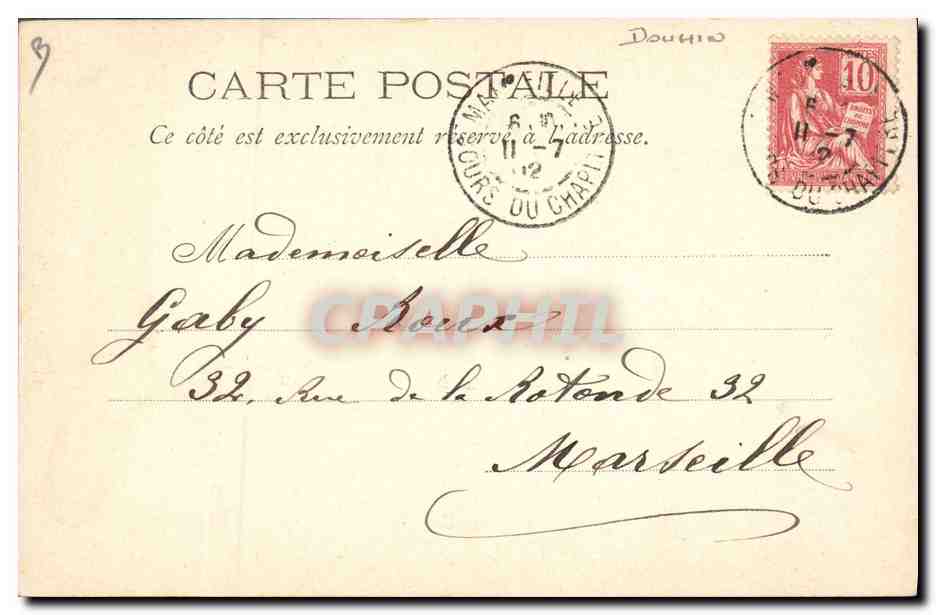 DOUHIN
CARTE POSTALE
Ce côté est exclusivement réservé à l'adresse.
MARSEILLE
11 - 7
02
COURS DU CHAPITRE
10
DROITS DE L'HOMME
11 - 7
02
DU CHAPITRE
Mademoiselle
Gaby Roux
CPAPHIL
32, Rue de la Rotonde 32
Marseille